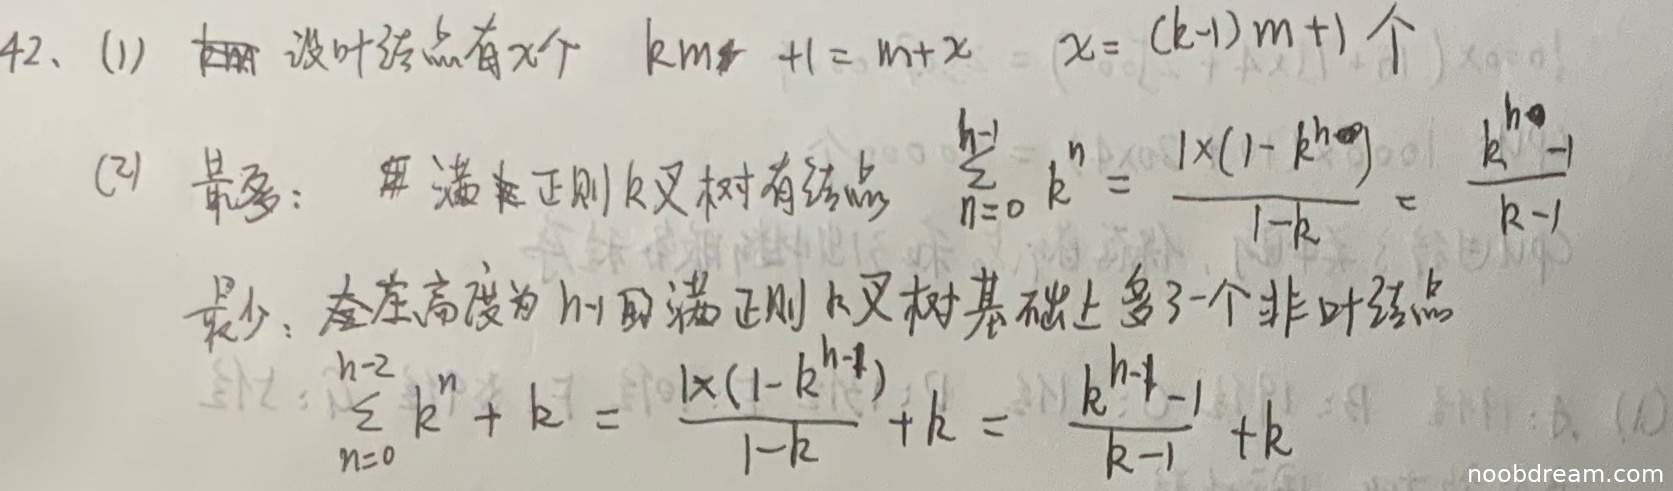 42、(1) 设叶结点有x个 km +1 = m+x x = (k-1)m+1个
(2) 最多: 满 正则k叉树有结点 \sum_{n=0}^{h-1} k^n = \frac{1×(1-k^h)}{1-k} = \frac{k^h-1}{k-1}
最少: 在高度为h-1的满正则k叉树基础上多了一个非叶结点
\sum_{n=0}^{h-2} k^n + k = \frac{1×(1-k^{h-1})}{1-k} + k = \frac{k^{h-1}-1}{k-1} + k
noobdream.com